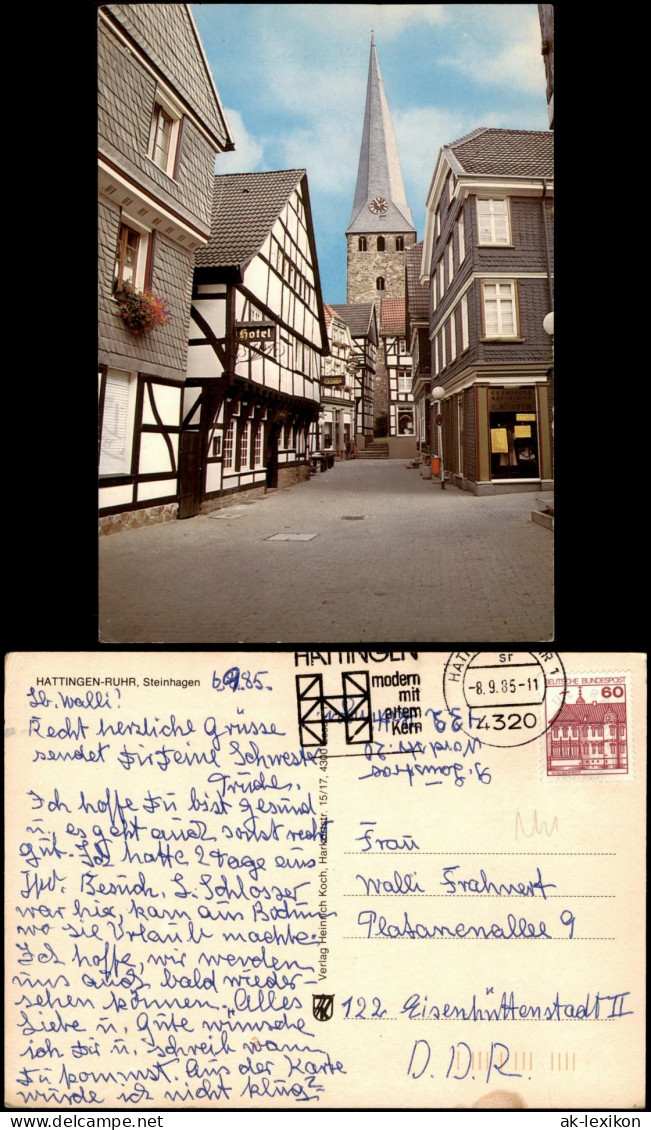 Hotel
HATTINGEN-RUHR, Steinhagen
6.9.85.
Lb. Walli!
Recht herzliche Grüsse
sendet Dir Deine Schweste
Trudes.
Ich hoffe Du bist gesund
u. es geht auch sonst recht
gut. Ich hatte 2 Tage aus
Besuch. Schlosser
war hier, kam aus Bochum
wo sie Urlaub machte.
Ich hoffe, wir werden
uns auch bald wieder-
sehen können. Alles
Liebe u. Gute wünsche
ich Dir u. schreib wann
Du kommst. Aus der Karte
würde ich nicht klug?
Verlag Heinrich Koch, Harkortstr. 15/17, 4300
HATTINGEN
modern
mit
altem
Kern
HAT
GEN, RUHR 1
sr
-8.9.85-11
4320
DEUTSCHE BUNDESPOST
60
Frau
Walli Frahnert
Platanenallee 9
122 Eisenhüttenstadt II
D.D.R.
ak-lexikon
ak-lexikon.com